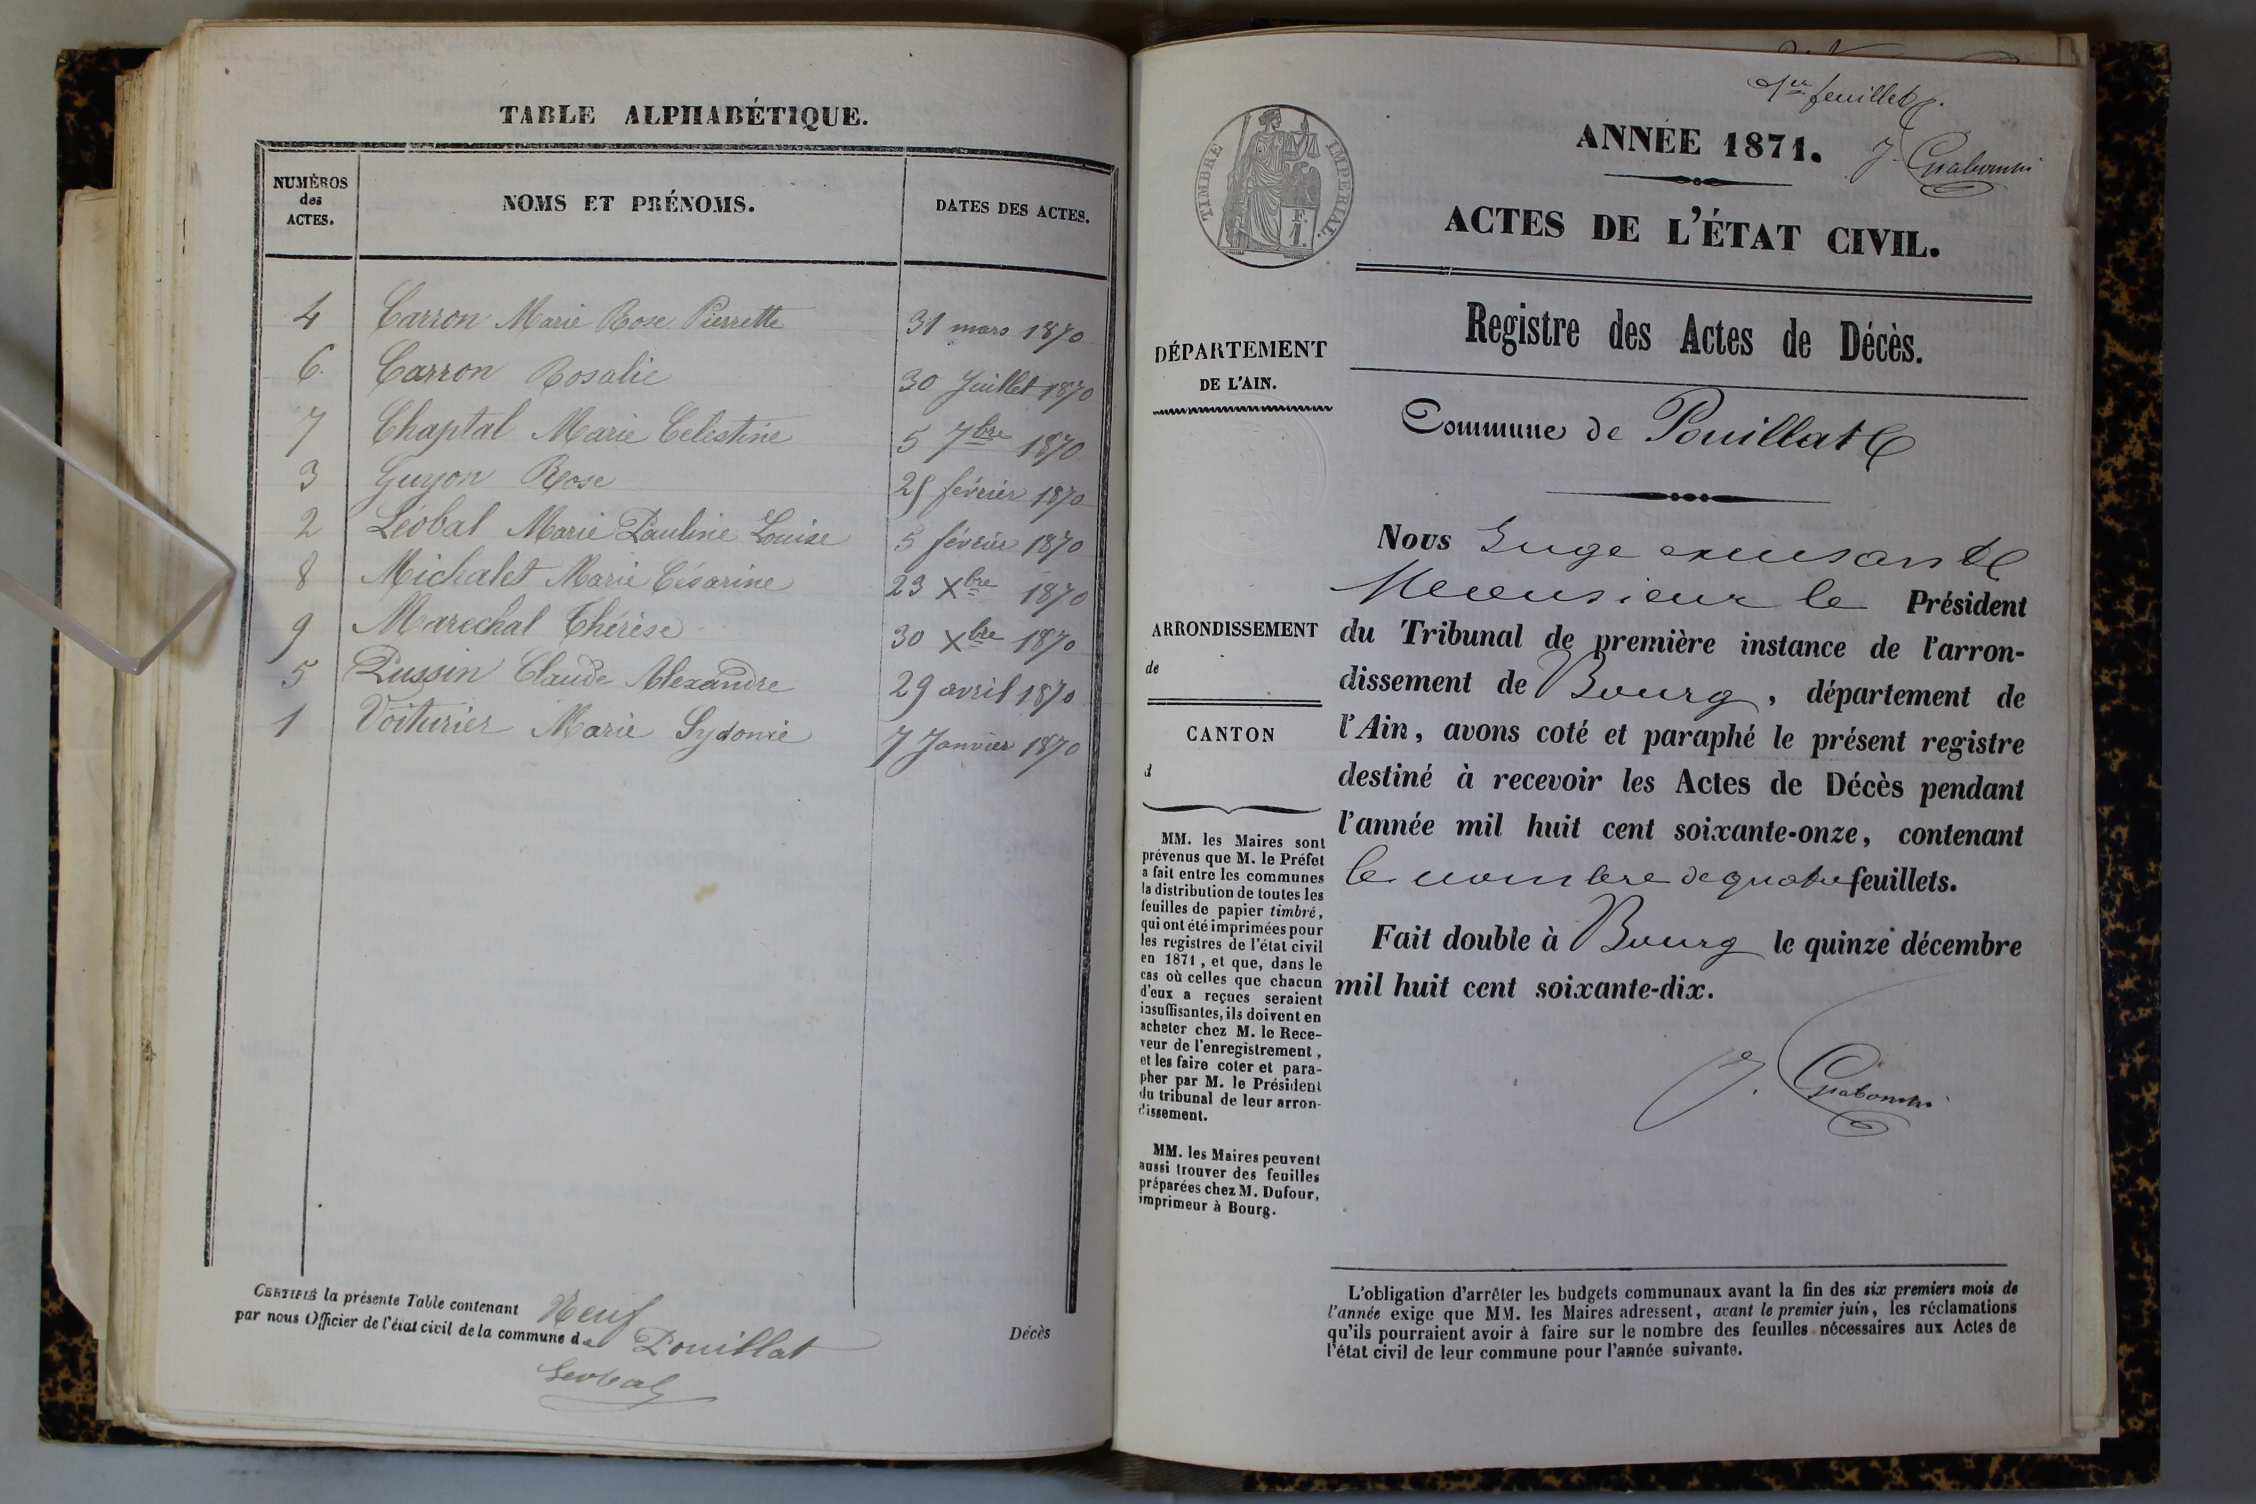 TABLE ALPHABÉTIQUE.
NUMÉROS
des
ACTES.
NOMS ET PRÉNOMS.
DATES DES ACTES.
4 Carron Marie Rose Pierrette 31 mars 1870
6. Carron Rosalie 30 Juillet 1870
7 Chaptal Marie Celestine 5 7bre 1870
3 Guyon Rose 25 février 1870
2 Léobal Marie Pauline Louise 5 février 1870
8 Michalet Marie Césarine 23 Xbre 1870
9 Marechal Thérèse 30 Xbre 1870
5 Pussin Claude Alexandre 29 avril 1870
1 Voiturier Marie Sydonie 7 Janvier 1870
CERTIFIÉ la présente Table contenant Neuf
par nous Officier de l'état civil de la commune de Pouillat
Décès
Léobal
1er feuillet
TIMBRE IMPERIAL.
F.
1.
ANNÉE 1871.
ACTES DE L'ÉTAT CIVIL.
Registre des Actes de Décès.
Commune de Pouillat
DÉPARTEMENT
DE L'AIN.
ARRONDISSEMENT
de
CANTON
d
MM. les Maires sont
prévenus que M. le Préfet
a fait entre les communes
la distribution de toutes les
feuilles de papier timbré,
qui ont été imprimées pour
les registres de l'état civil
en 1871, et que, dans le
cas où celles que chacun
d'eux a reçues seraient
insuffisantes, ils doivent en
acheter chez M. le Rece-
veur de l'enregistrement,
et les faire coter et para-
pher par M. le Président
du tribunal de leur arron-
dissement.
MM. les Maires peuvent
aussi trouver des feuilles
préparées chez M. Dufour,
imprimeur à Bourg.
Nous Juge excusant
Monsieur le Président
du Tribunal de première instance de l'arron-
dissement de Bourg, département de
l'Ain, avons coté et paraphé le présent registre
destiné à recevoir les Actes de Décès pendant
l'année mil huit cent soixante-onze, contenant
le nombre de quatre feuillets.
Fait double à Bourg le quinze décembre
mil huit cent soixante-dix.
L'obligation d'arrêter les budgets communaux avant la fin des six premiers mois de
l'année exige que MM. les Maires adressent, avant le premier juin, les réclamations
qu'ils pourraient avoir à faire sur le nombre des feuilles nécessaires aux Actes de
l'état civil de leur commune pour l'année suivante.